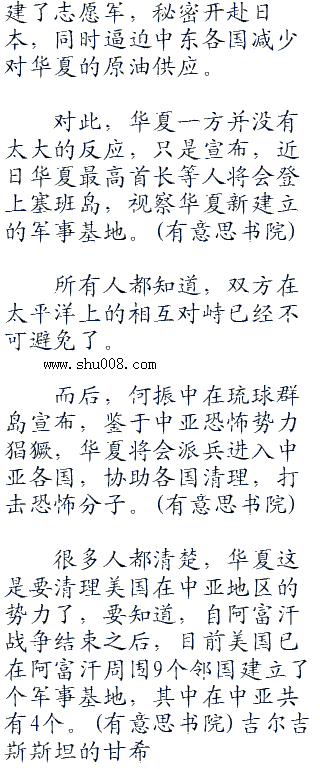 建了志愿军，秘密开赴日
本，同时逼迫中东各国减少
对华夏的原油供应。
对此，华夏一方并没有
太大的反应，只是宣布，近
日华夏最高首长等人将会登
上塞班岛，视察华夏新建立
的军事基地。(有意思书院)
所有人都知道，双方在
太平洋上的相互对峙已经不
可避免了。
www.shu008.com
而后，何振中在琉球群
岛宣布，鉴于中亚恐怖势力
猖獗，华夏将会派兵进入中
亚各国，协助各国清理，打
击恐怖分子。(有意思书院)
很多人都清楚，华夏这
是要清理美国在中亚地区的
势力了，要知道，自阿富汗
战争结束之后，目前美国已
在阿富汗周围9个邻国建立了
个军事基地，其中在中亚共
有4个。(有意思书院)吉尔吉
斯斯坦的甘希